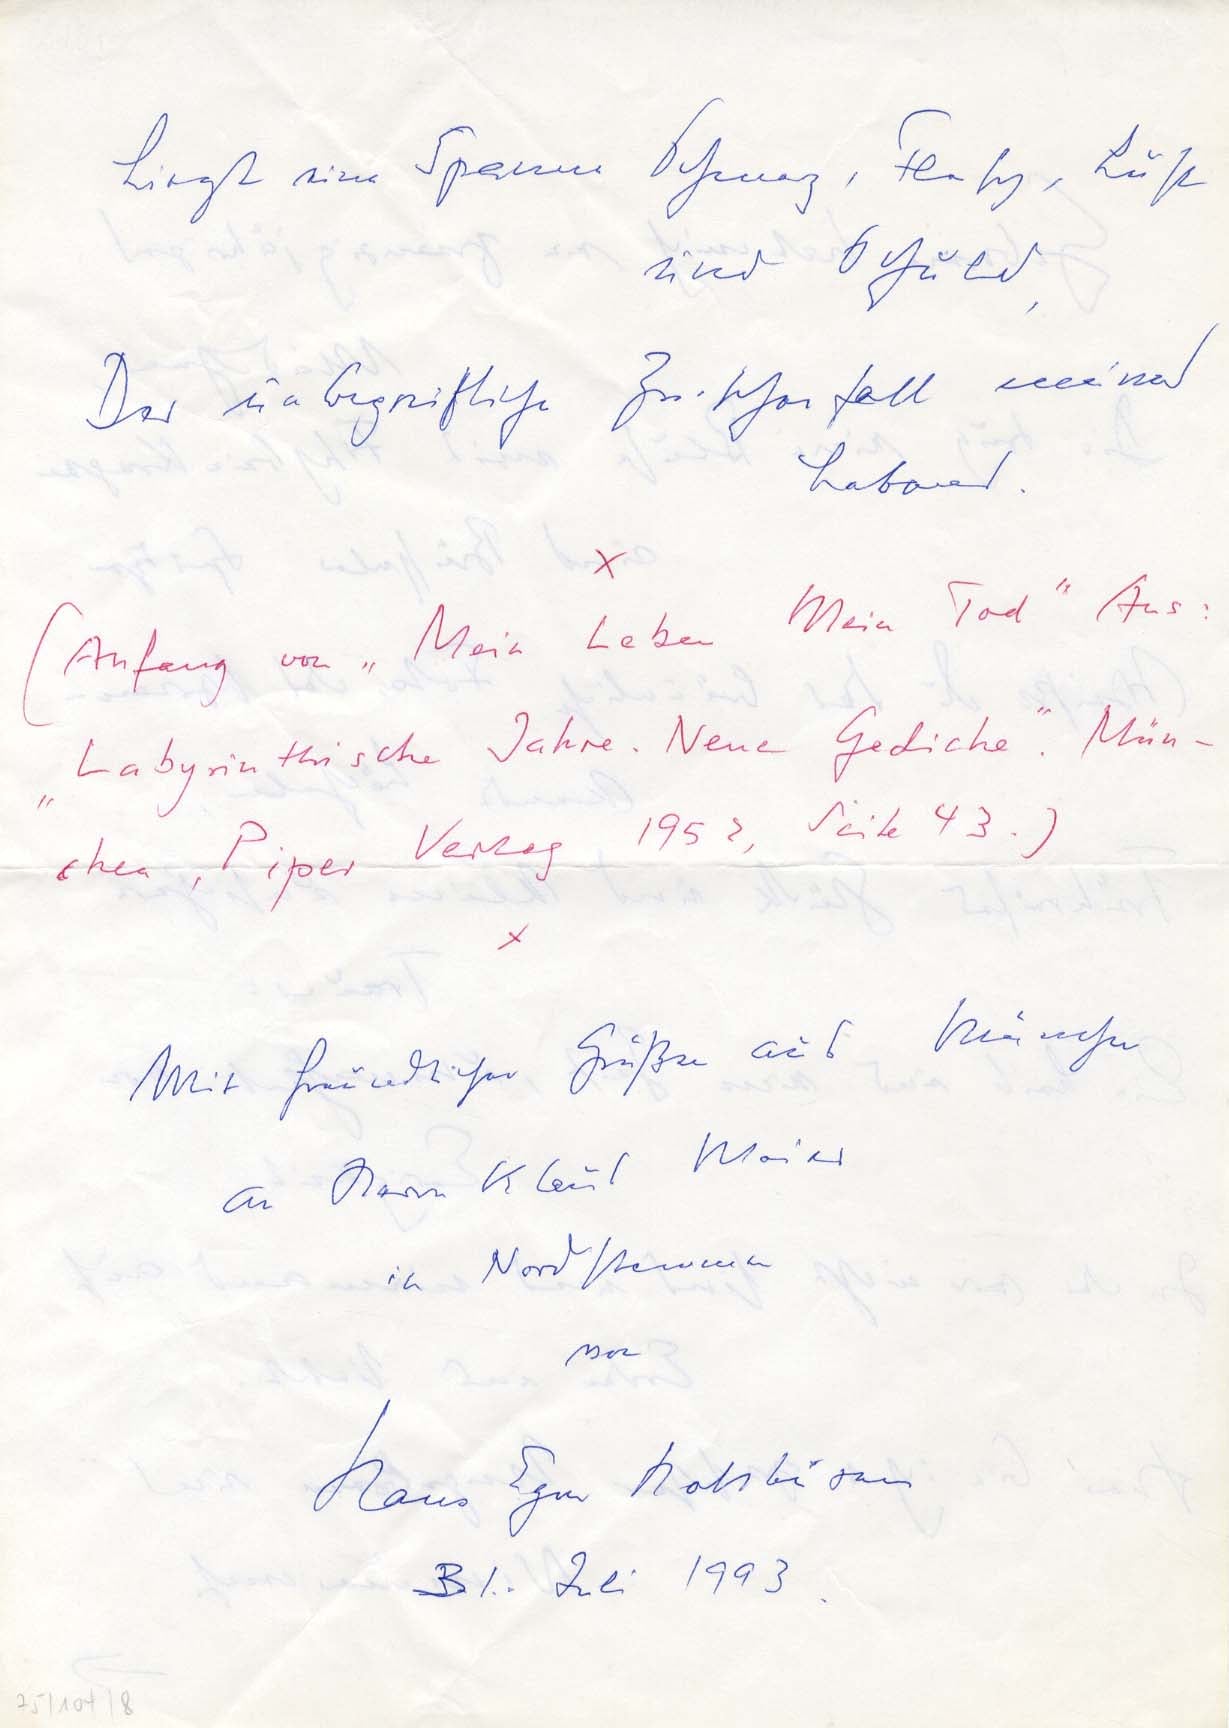 Liegt eine Spanne Schmerz, Flachs, Lust
und Schuld,
Der unbegreifliche Zwischenfall meines
Lebens.
x
(Anfang von „Mein Leben Mein Tod" Aus:
„Labyrinthische Jahre. Neue Gedichte". Mün-
chen, Piper Verlag 1952, Seite 43.)
x
Mit freundlichen Grüßen aus München
an Herrn Klaus Meier
in Nordstemmen
von
Hans Egon Holthusen
31. Juli 1993.